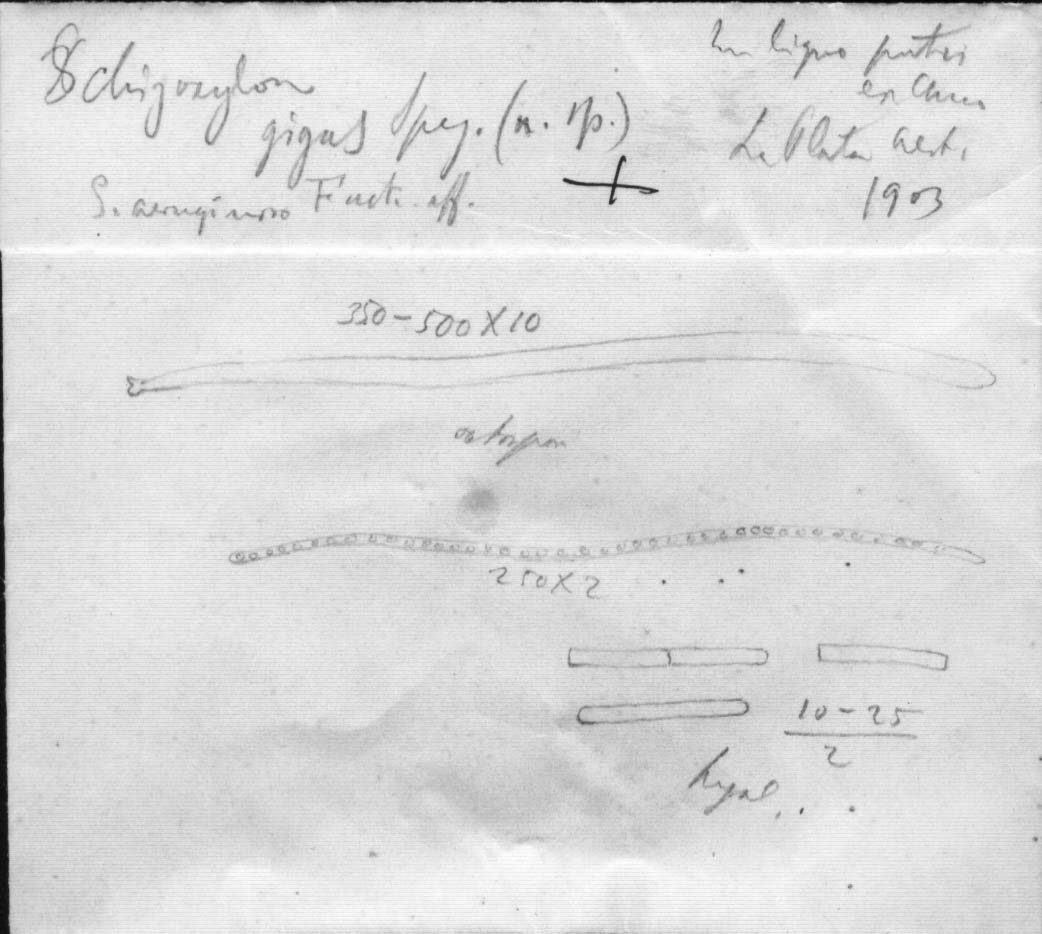 Schizoxylon
gigas Speg. (n. sp.)
S. aeruginoso Fuck. aff.
In ligno putri
La Plata aest.
1903
350-500 X 10
octospor
250 X 2
10-25
2
hyal.